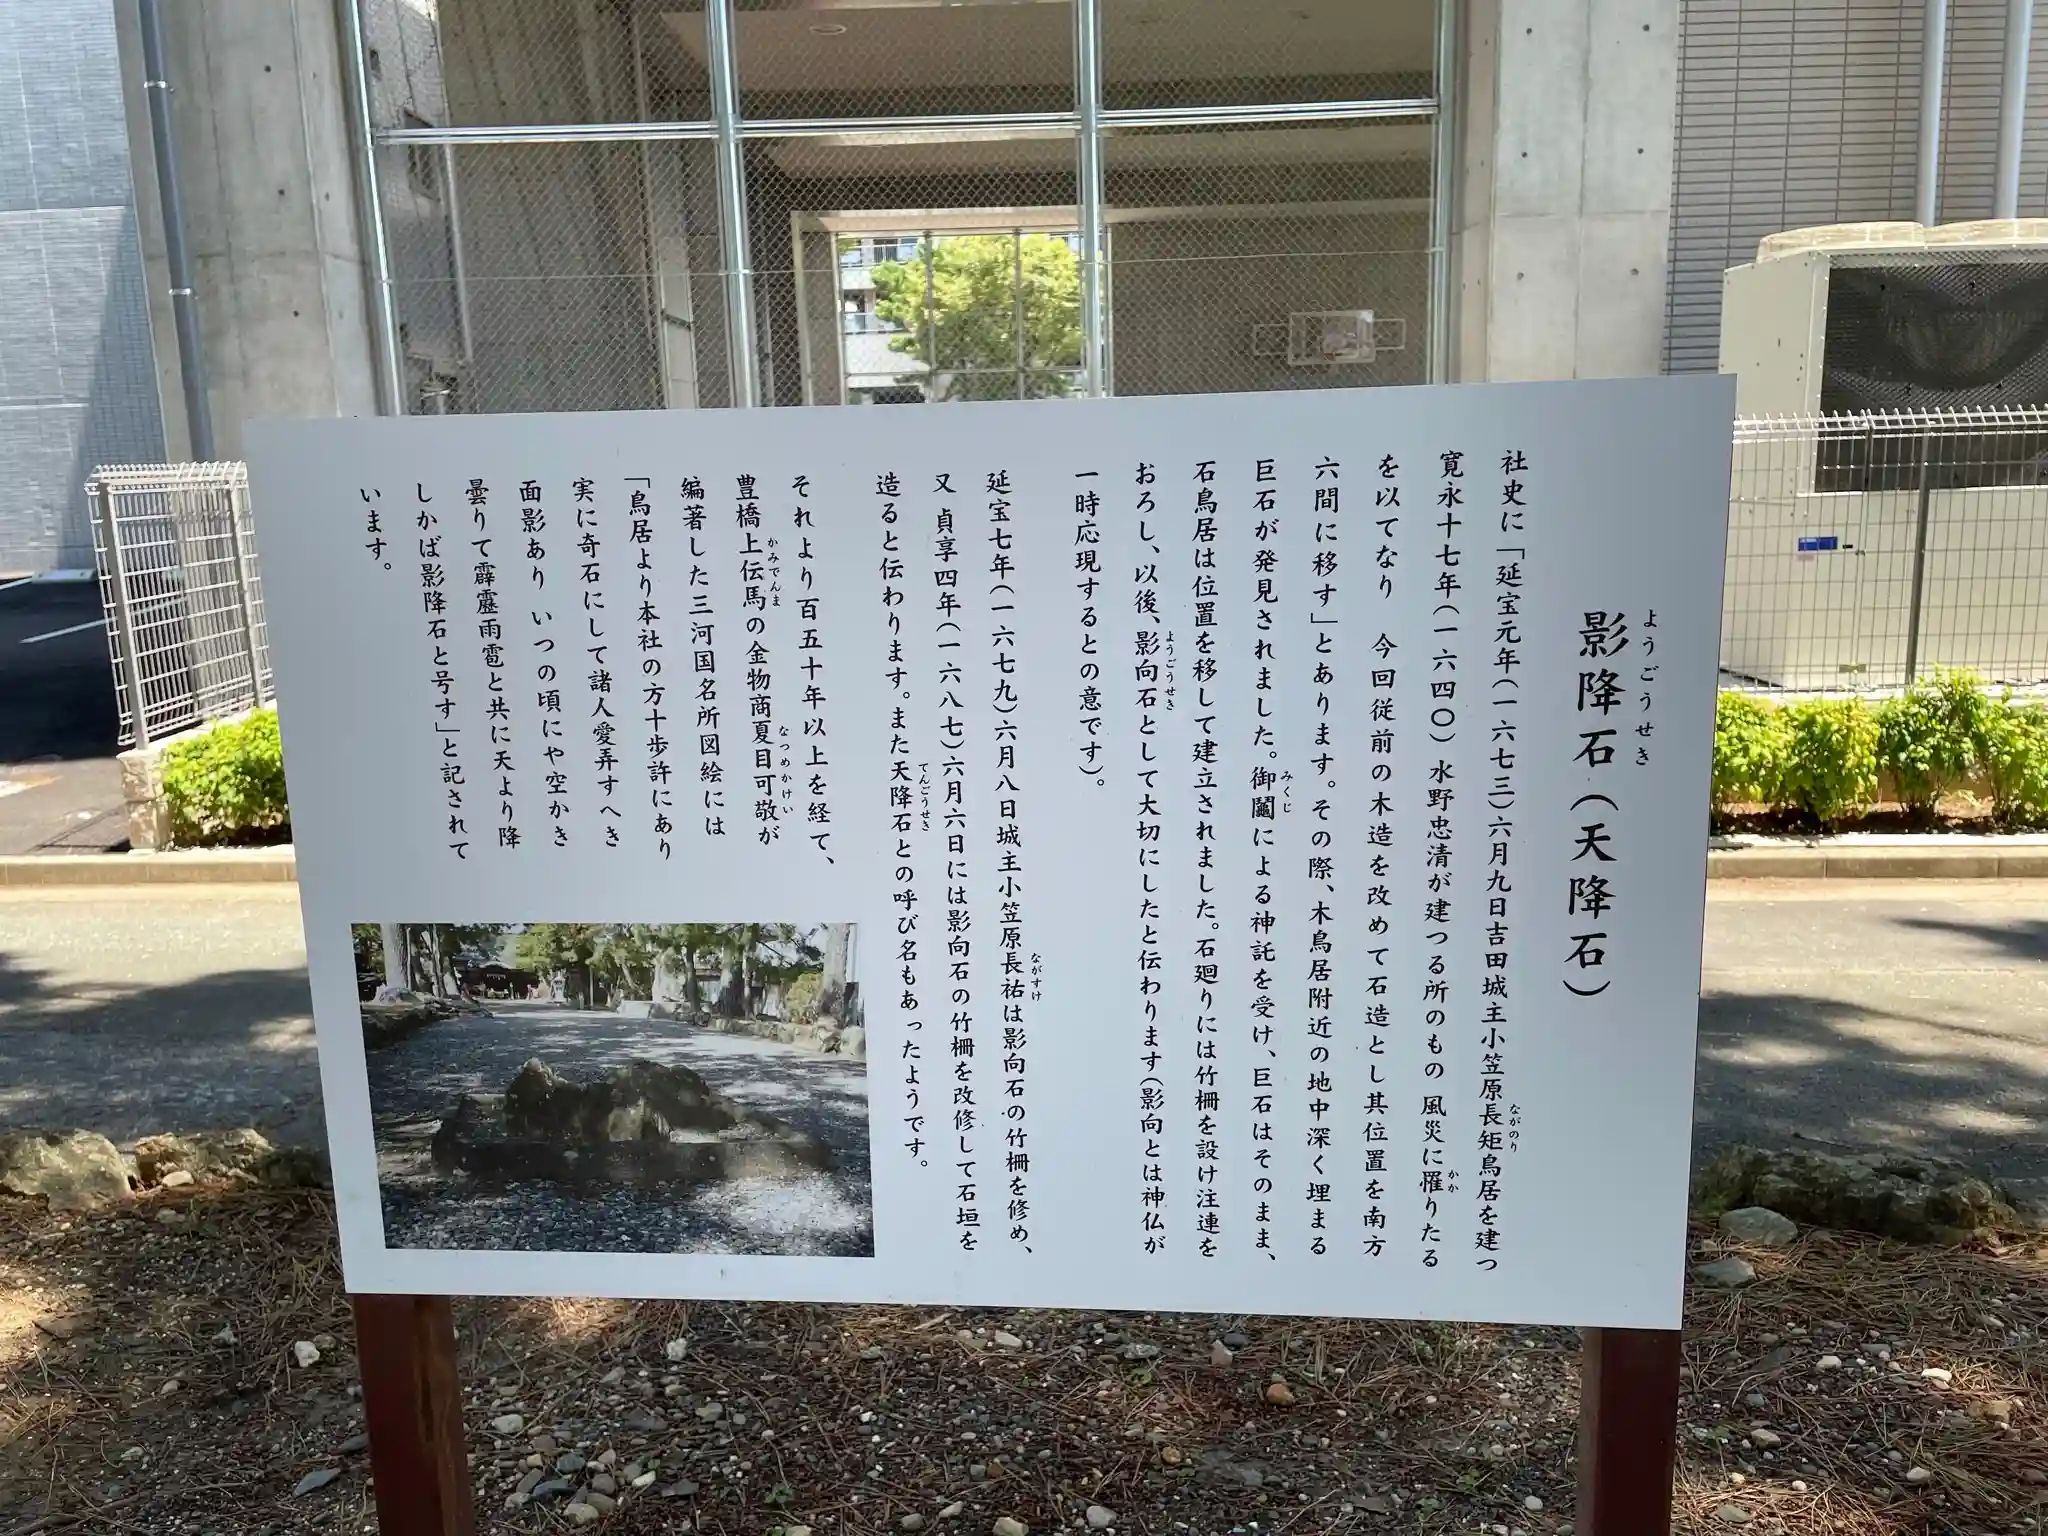 影降石（天降石）
ようごうせき
社史に「延宝元年（一六七三）六月九日吉田城主小笠原長矩鳥居を建つ
ながのり
寛永十七年（一六四〇）水野忠清が建つる所のもの　風災に罹りたる
かか
を以てなり　今回従前の木造を改めて石造とし其位置を南方
六間に移す」とあります。その際、木鳥居附近の地中深く埋まる
巨石が発見されました。御鬮による神託を受け、巨石はそのまま、
みくじ
石鳥居は位置を移して建立されました。石廻りには竹柵を設け注連を
おろし、以後、影向石として大切にしたと伝わります（影向とは神仏が
ようごうせき
一時応現するとの意です）。
延宝七年（一六七九）六月八日城主小笠原長祐は影向石の竹柵を修め、
ながすけ
又　貞享四年（一六八七）六月六日には影向石の竹柵を改修して石垣を
造ると伝わります。また天降石との呼び名もあったようです。
てんごうせき
それより百五十年以上を経て、
豊橋上伝馬の金物商夏目可敬が
かみでんま
なつめかけい
編著した三河国名所図絵には
「鳥居より本社の方十歩許にあり
実に奇石にして諸人愛弄すへき
面影あり　いつの頃にや空かき
曇りて霹靂雨雹と共に天より降
しかば影降石と号す」と記されて
います。